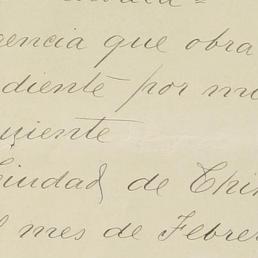 gencia que obra
diente por m
uiente
Ciudad de Chi
l mes de Febrer